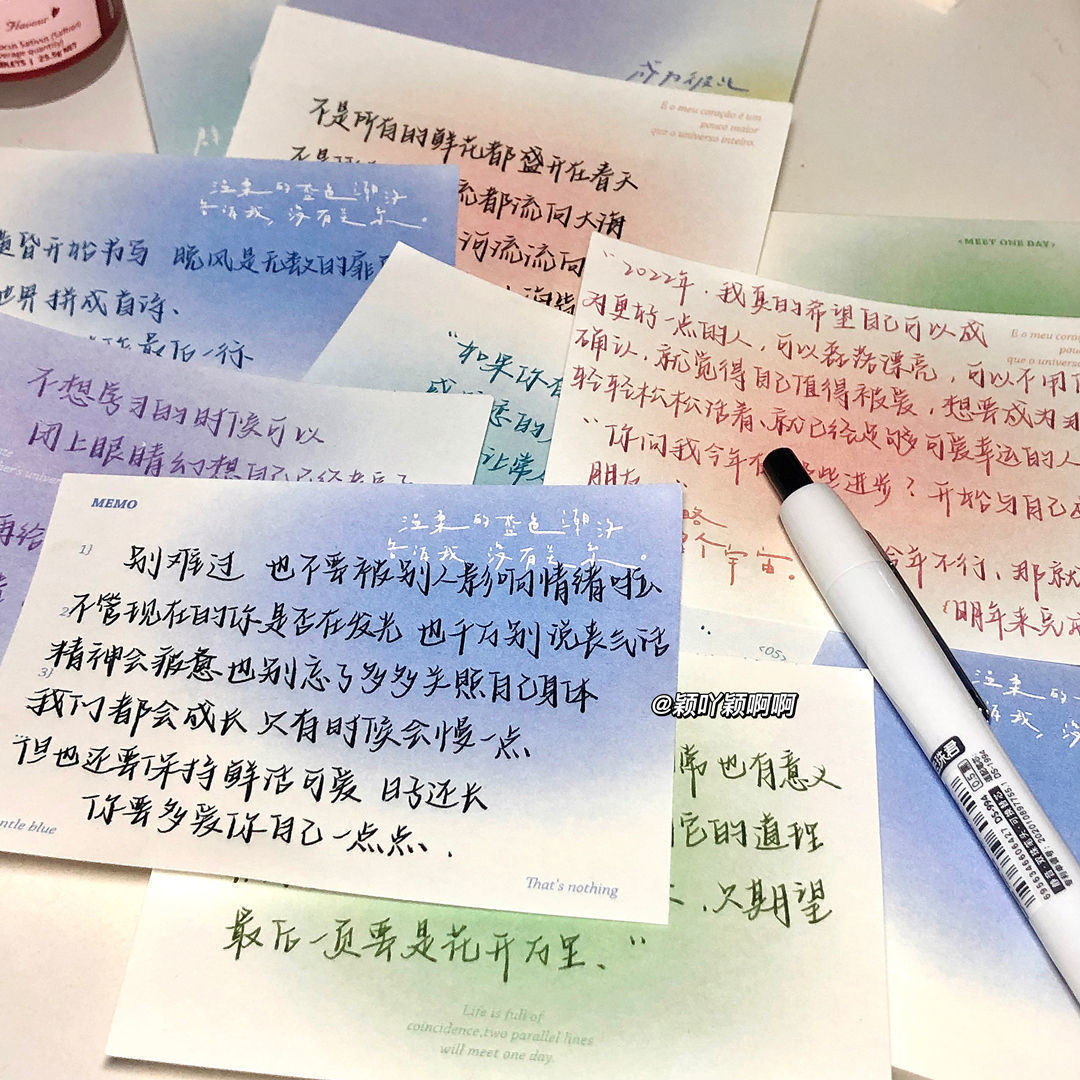 Flavour
成为彼此
不是所有的鲜花都盛开在春天
流都流向大海
河流流向
E o meu coração é um
pouco maior
que o universo inteiro.
注来的蓝色潮汐
告诉我,没有关系。
黄昏开始书写 晚风是无数的扉页
世界拼成首诗、
最后一行
<MEET ONE DAY>
"如果你
"2022年,我真的希望自己可以成
为更好一点的人,可以磊落漂亮,可以不用
确认,就觉得自己值得被爱,想要成为
轻轻松松活着、就已经足够可爱幸运的人
"你问我今年有哪些进步?开始与自己
朋友
个宇宙。
今年不行、那就
明年来完
E o meu
que o universo
不想学习的时候可以
闭上眼睛幻想自己已经
再给
MEMO
注来的蓝色潮汐
告诉我,没有关系。
1)
别难过 也不要被别人影响情绪啦
2)
不管现在的你是否在发光 也千万别说丧气话
3)
精神会疲惫也别忘了多多关照自己身体
我们都会成长 只有时候会慢一点
"但也还要保持鲜活可爱 日子还长
你要多爱你自己一点点.
ntle blue
That's nothing
@颖吖颖啊啊
常也有意义
它的道理
,只期望
最后一页要是花开万里、"
Life is full of
coincidence,two parallel lines
will meet one day.
0.5
DS-994
6956346606427